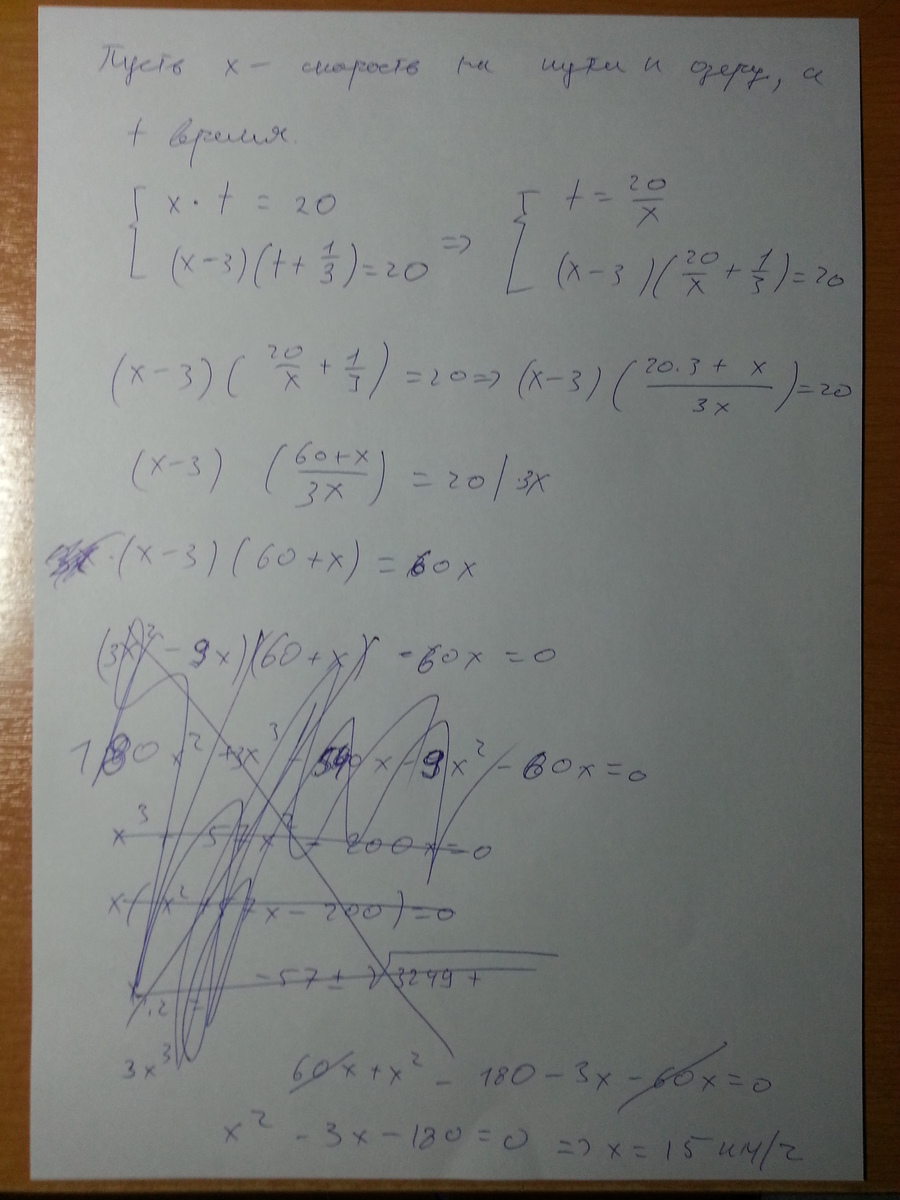 Пусть x — скорость на пути к озеру, а
t время.
{ x · t = 20
(x-3)(t+1/3)=20 => { t = 20/x
(x-3)(20/x + 1/3)=20
(x-3)(20/x + 1/3) =20=> (x-3)((20·3+x)/3x)=20
(x-3) ((60+x)/3x) = 20 | ·3x
·(x-3)(60+x) = 60x
(3x² - 9x)(60+x) - 60x = 0
180x² + 3x³ - 540x - 9x² - 60x = 0
x³ - 57x² - 200x=0
x(x² 57x - 200)=0
-57 ± √3249 +
3x³
60x + x² - 180 - 3x - 60x = 0
x² - 3x - 180 = 0 => x = 15 км/ч